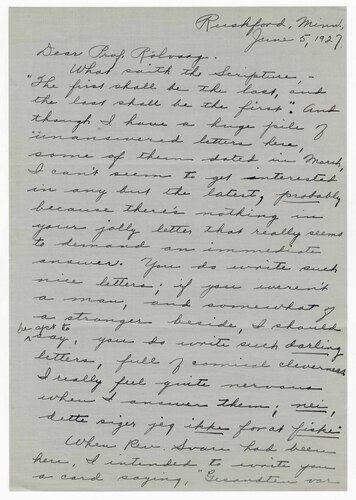 Rushford, Minn.
June 5, 1927.
Dear Prof. Rölvaag.
What saith the Scripture, -
"The first shall be the last, and
the last shall be the first". And
though I have a huge pile of
unanswered letters here,
some of them dated in March,
I can't seem to get interested
in any but the latest, probably
because there's nothing in
your jolly letter that really seems
to demand an immediate
answer. You do write such
nice letters; if you weren't
a man, and somewhat of
a stranger beside, I should
be apt to
say, you do write such darling
letters, full of comical cleverness
I really feel quite nervous
when I answer them; nei,
dette siger jeg ikke for at fiske.
When Rev. Svare had been
here, I intended to write you
a card saying, "Gesandten var